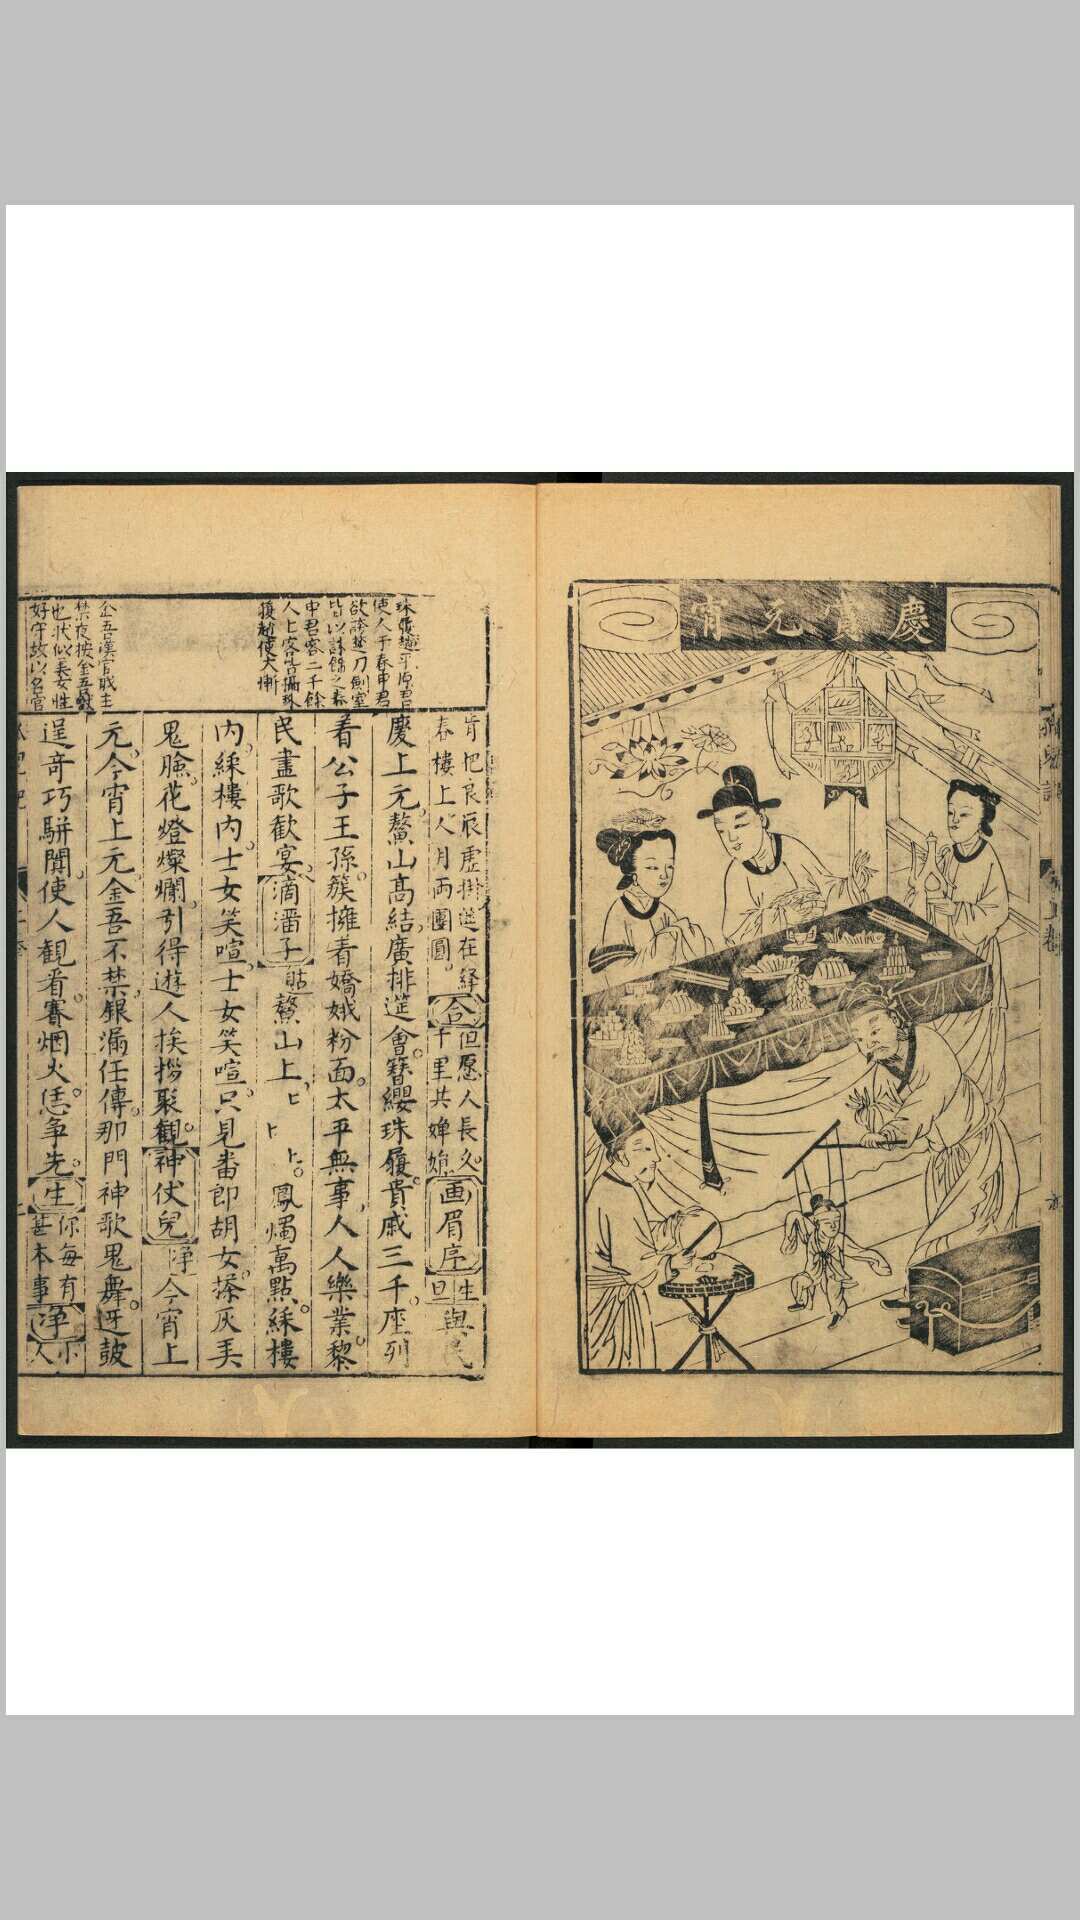 慶賞元宵
珠履趙平原君
使人于春申君
欲誇楚刀劍室
皆以珠飾之春
申君客二千餘
人上客皆攝珠
履趙使大慚
金吾漢官職主
禁夜按金吾獸
也狀似美女性
好守故以名官
肯把良辰虛掛
春樓上人月兩團圓
合 但愿人長久
千里共嬋娟
画眉序 生旦 與民
慶上元鰲山高結廣排筵會簪纓珠履貴戚三千座列
看公子王孫簇擁着嬌娥粉面太平無事人人樂業黎
民盡歌歡宴 滴潘子 貼 鰲山上 鳳燭萬點綵樓
內綵樓內士女笑喧士女笑喧只見番郎胡女搽灰弄
鬼臉花燈燦爛引得遊人挨拶聚觀 神仗兒 淨 今宵上
元今宵上元金吾不禁銀漏任傳那門神歌鬼舞迓鼓
逞奇巧駢闐使人觀看賽烟火恁爭先 生 你每有
甚本事 淨 小
人